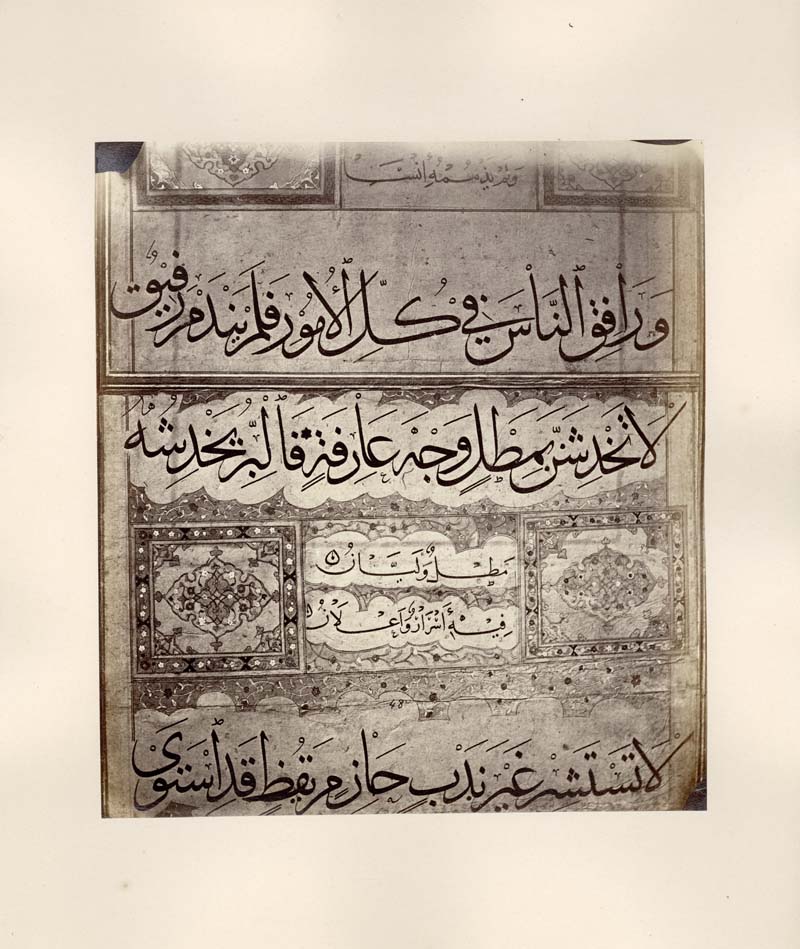 وَلَمْ يَذْمُمْهُ إِنْسَا
وَرَافِقِ ٱلنَّاسَ فِي كُلِّ ٱلْأُمُوْرِ فَلَمْ يَنْدَمْ رَفِيْقٌ
لَا تَخْدِشَنَّ بِمَطْلٍ وَجْهَ عَارِفَةٍ فَٱلْبِرُّ يَخْدِشُهُ
مَطْلٌ وَلَيَّانُ
فِيْهِ أَسْرَارٌ وَاعْلَانُ
48
لَا تَسْتَشِرْ غَيْرَ نَدْبٍ حَازِمٍ يَقِظٍ قَدِ اسْتَوَى